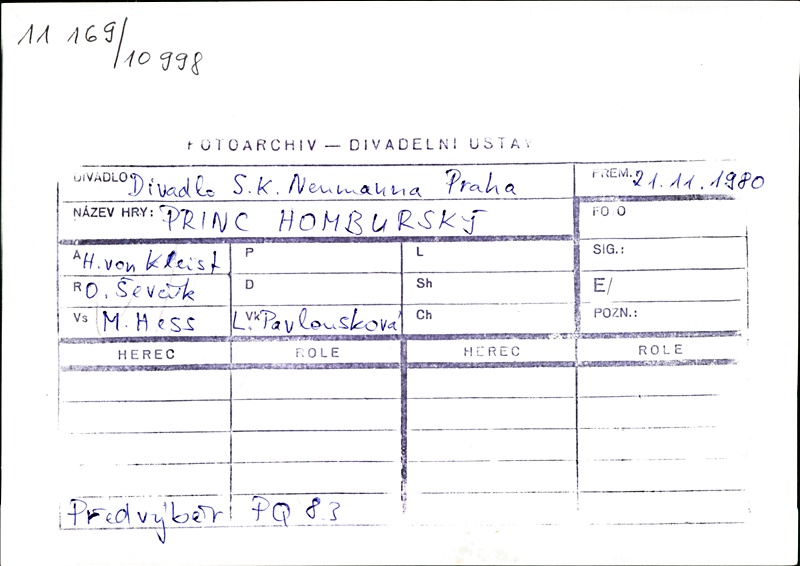 11 169/
10 998
FOTOARCHIV — DIVADELNÍ ÚSTAV
DIVADLO Divadlo S.K. Neumanna Praha PREM. 21.11.1980
NÁZEV HRY: PRINC HOMBURSKÝ FO O
A H. von Kleist P L SIG.:
R O. Ševčík D Sh E/
Vs M. Hess Vk L. Pavlousková Ch POZN.:
HEREC ROLE HEREC ROLE
Předvýběr PQ 83